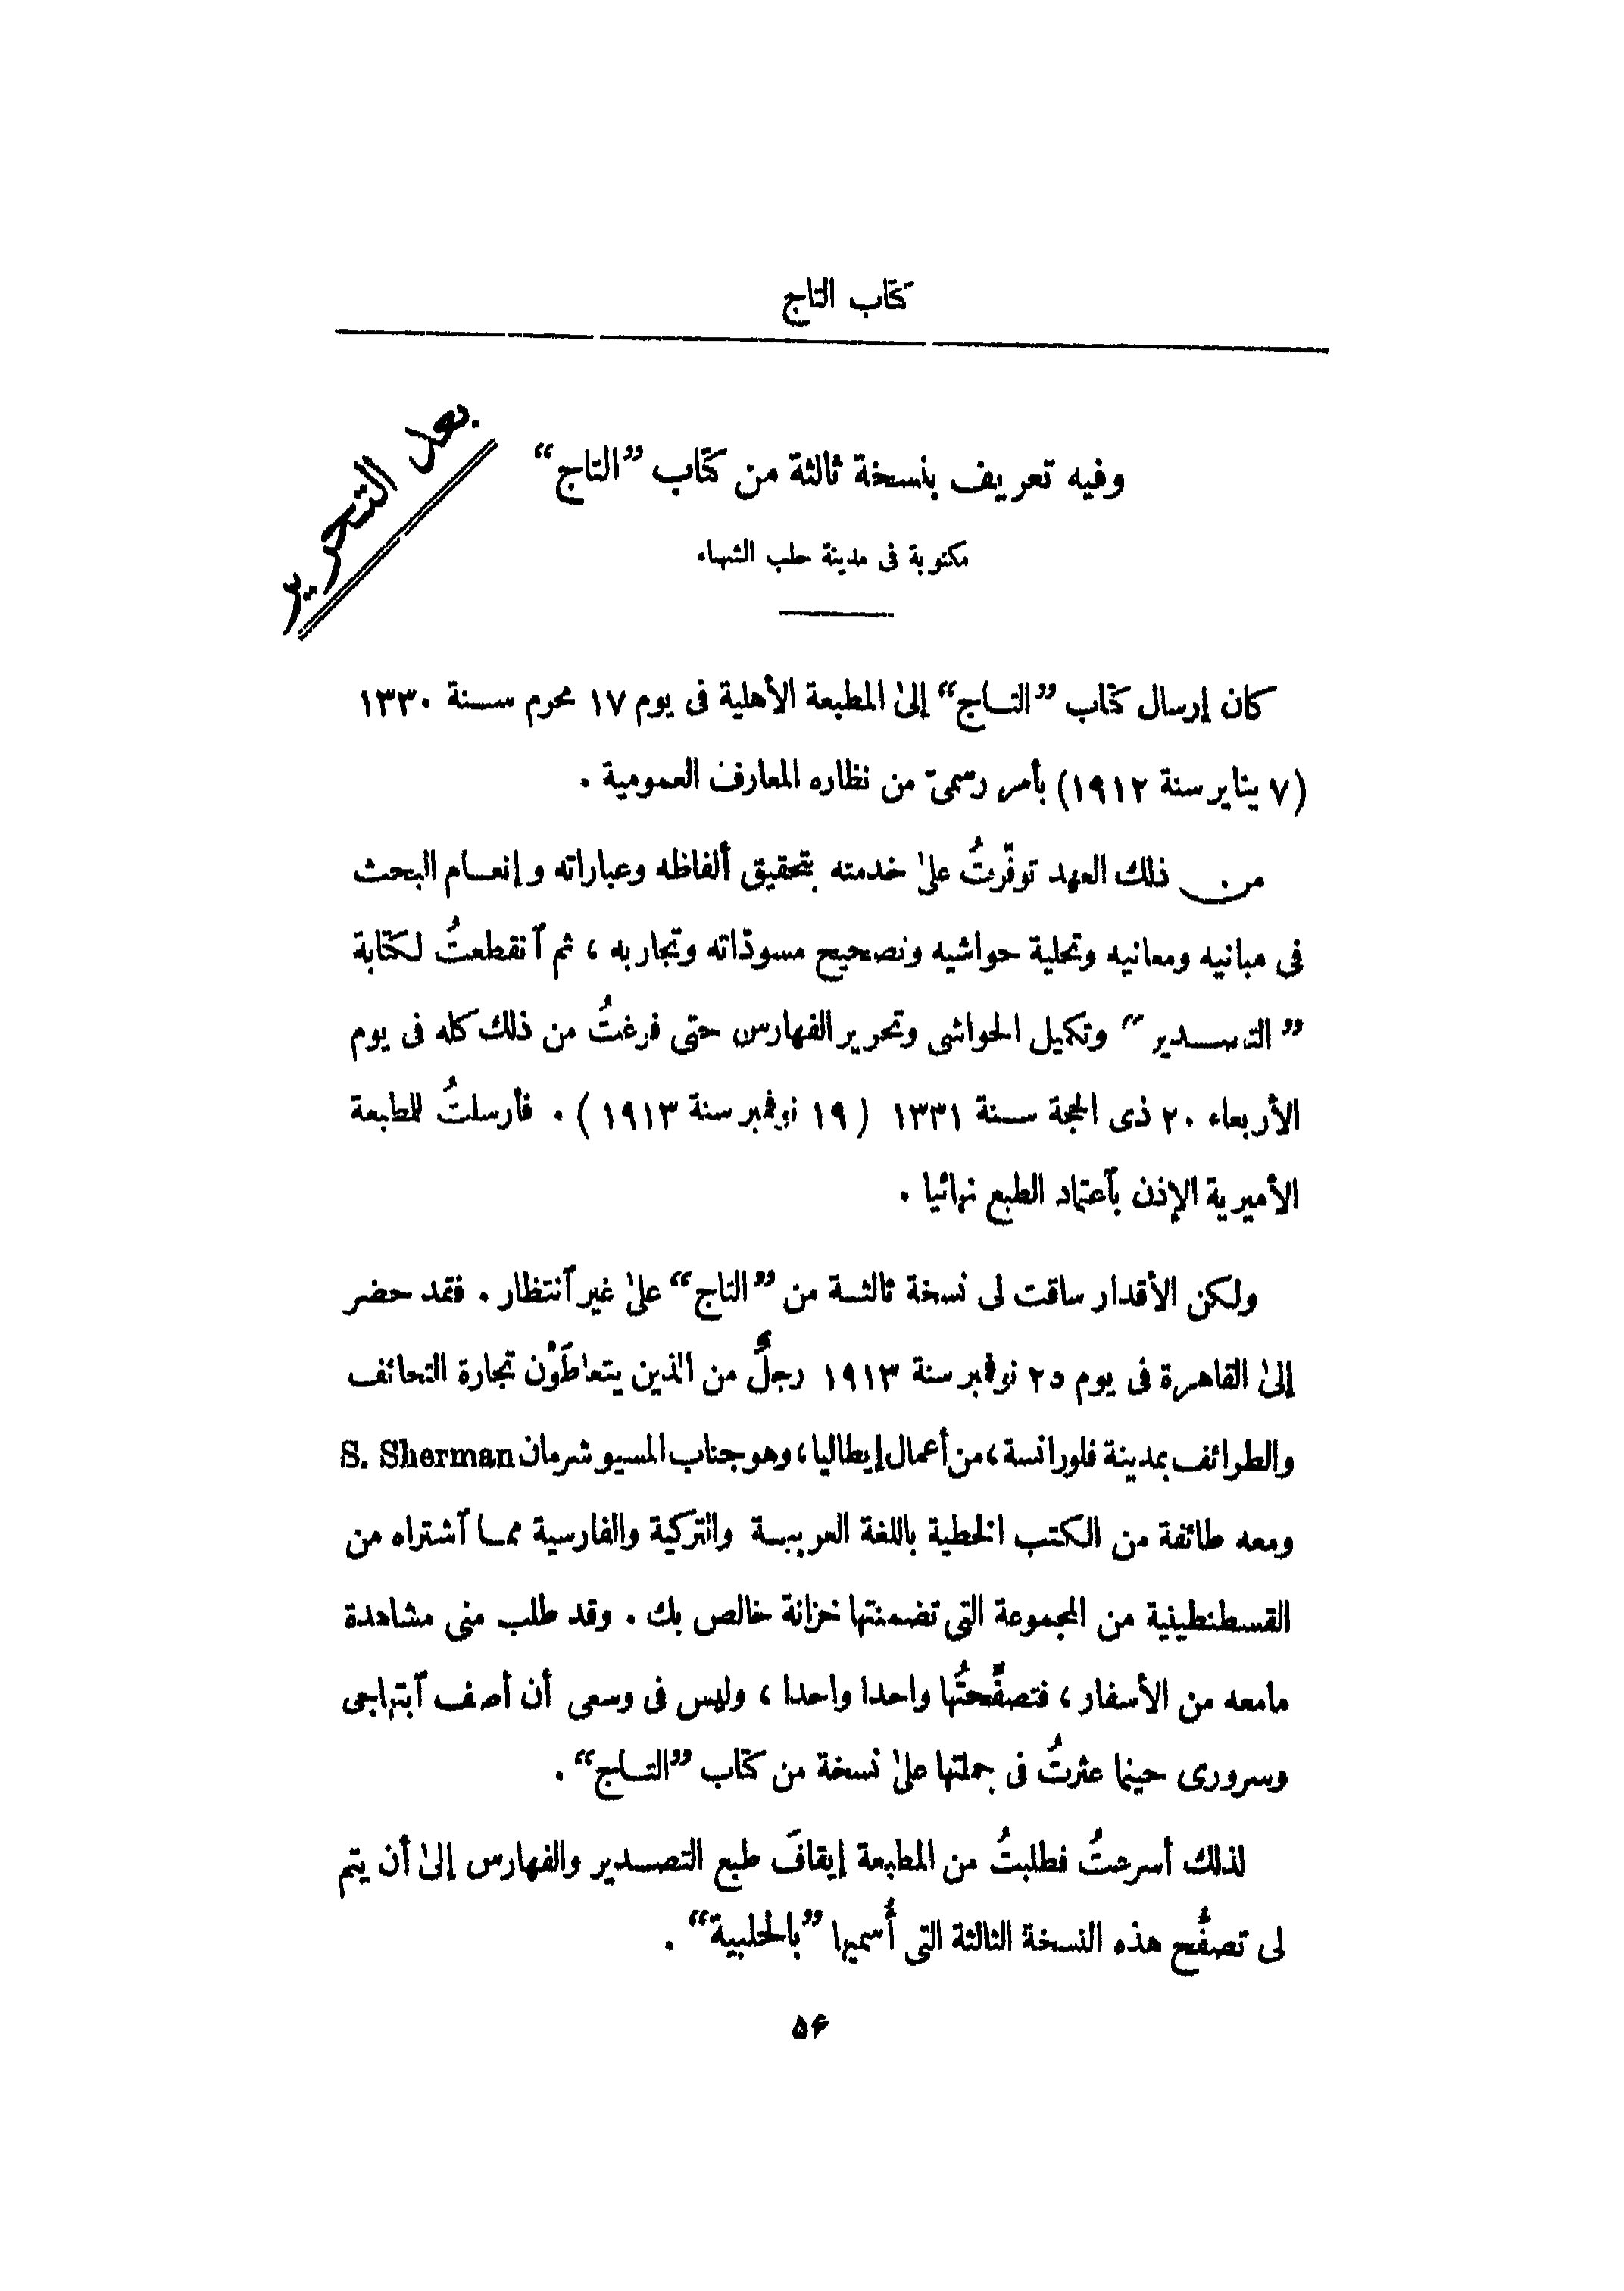 كتاب التاج
بعد التحرير
وفيه تعريف بنسخة ثالثة من كتاب ”التاج“
مكتوبة فى مدينة حلب الشهباء
كان إرسال كتاب ”التاج“ إلىٰ المطبعة الأهلية فى يوم ١٧ محرم سنة ١٣٣٠
(٧ يناير سنة ١٩١٢) بأمر رسمىّ من نظاره المعارف العمومية .
من ذلك العهد توفّرتُ علىٰ خدمته بتحقيق ألفاظه وعباراته وإنعام البحث
فى مبانيه ومعانيه وتحلية حواشيه وتصحيح مسودّاته وتجاربه ، ثم ٱنقطعتُ لكتابة
”التصدير“ وتكميل الحواشى وتحرير الفهارس حتى فرغتُ من ذلك كله فى يوم
الأربعاء ٢٠ ذى الحجة سنة ١٣٣١ (١٩ نوفمبر سنة ١٩١٣) . فأرسلتُ للطبعة
الأميرية الإذن بٱعتماد الطبع نهائيا .
ولكن الأقدار ساقت لى نسخة ثالثة من ”التاج“ علىٰ غير ٱنتظار . فقد حضر
إلىٰ القاهرة فى يوم ٢٥ نوفمبر سنة ١٩١٣ رجلٌ من الذين يتعاطَوْن تجارة التحائف
والطرائف بمدينة فلورانسة ، من أعمال إيطاليا ، وهو جناب المسيو شرمان S. Sherman
ومعه طائفة من الكتب الخطية باللغة العربية والتركية والفارسية مما ٱشتراه من
القسطنطينية من المجموعة التى تضمنتها خزانة خالص بك . وقد طلب منى مشاهدة
مامعه من الأسفار ، فتصفّحتُها واحدا واحدا ، وليس فى وسعى أن أصف ٱبتهاجى
وسرورى حينما عثرتُ فى جملتها علىٰ نسخة من كتاب ”التاج“ .
لذلك أسرعتُ فطلبتُ من المطبعة إيقافَ طبع التصدير والفهارس إلىٰ أن يتم
لى تصفُّح هذه النسخة الثالثة التى أُسميها ”بالحلبية“ .
۵۶